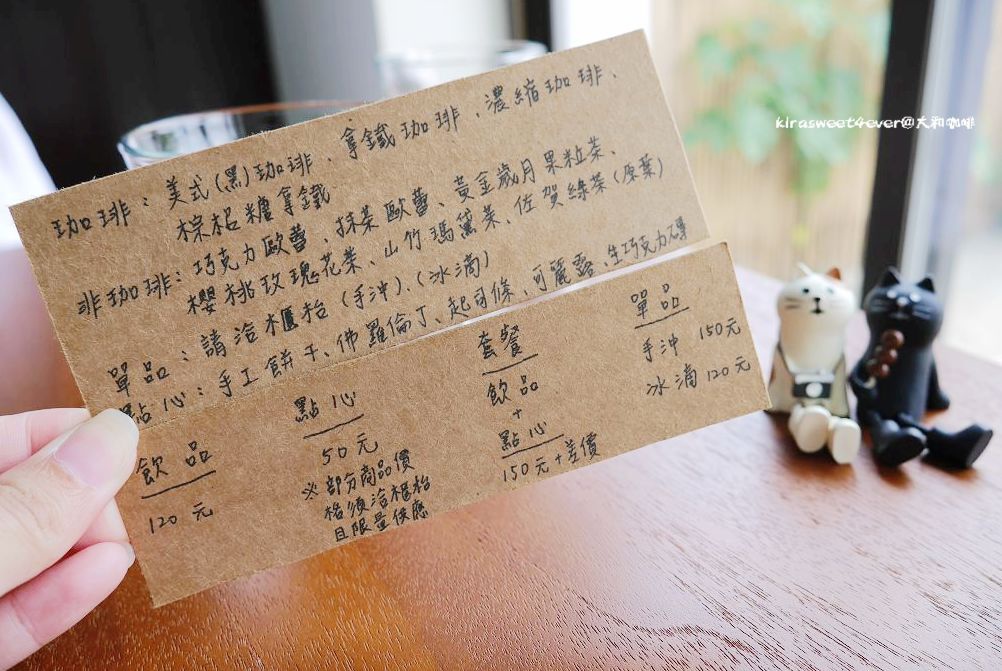 kirasweet4ever@大和咖啡
珈琲：美式(黑)珈琲、拿鐵珈琲、濃縮珈琲、
棕梠糖拿鐵
非珈琲：巧克力歐蕾、抹茶歐蕾、黃金歲月果粒茶、
櫻桃玫瑰花茶、山竹瑪黛茶、佐賀綠茶(原葉)
單品：請洽櫃枱(手沖)、(冰滴)
點心：手工餅干、佛羅倫丁、起司條、可麗露、生巧克力磚
飲品
120元
點心
50元
※部分商品價
格須洽櫃枱
且限量供應
套餐
飲品
+
點心
150元+差價
單品
手沖 150元
冰滴 120元